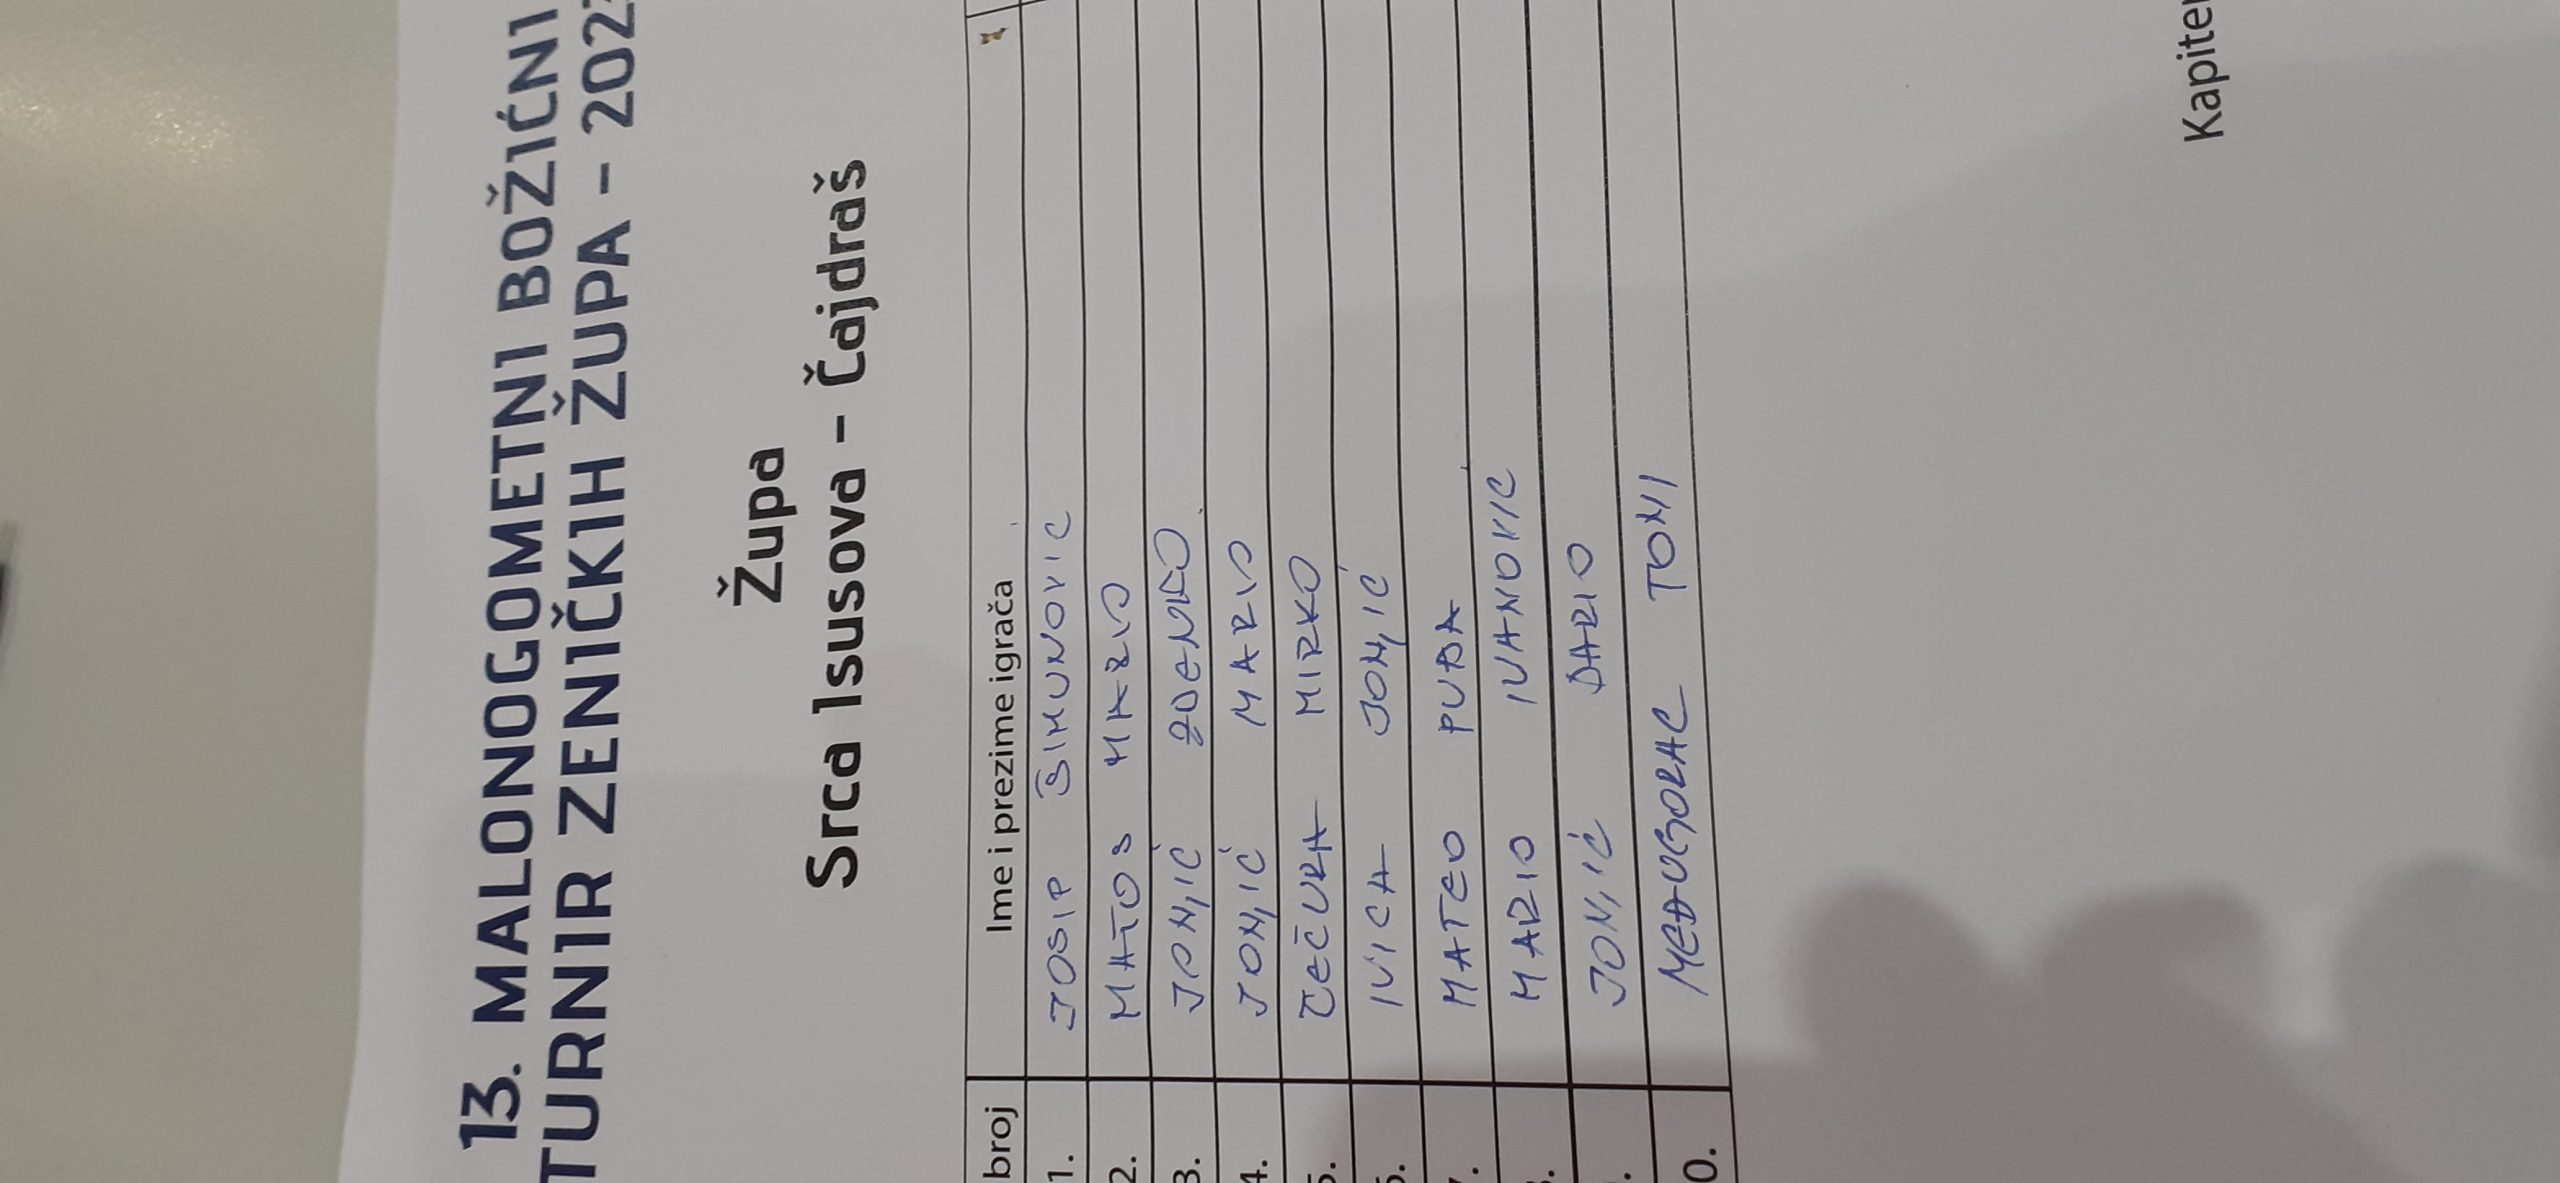 13. MALONOGOMETNI BOŽIĆNI
TURNIR ZENIČKIH ŽUPA - 202
Župa
Srca Isusova - Čajdraš
broj Ime i prezime igrača
1. JOSIP ŠIMUNOVIC
2. MATOS MARIO
3. JONJIĆ ZDENKO
4. JONJIĆ MARIO
5. ČEČURA MIRKO
6. IVICA JONJIĆ
7. MATEO PUĐA
8. MARIO IVANOVIC
. JONJIĆ DARIO
0. MEĐUGORAC TONI
Kapite